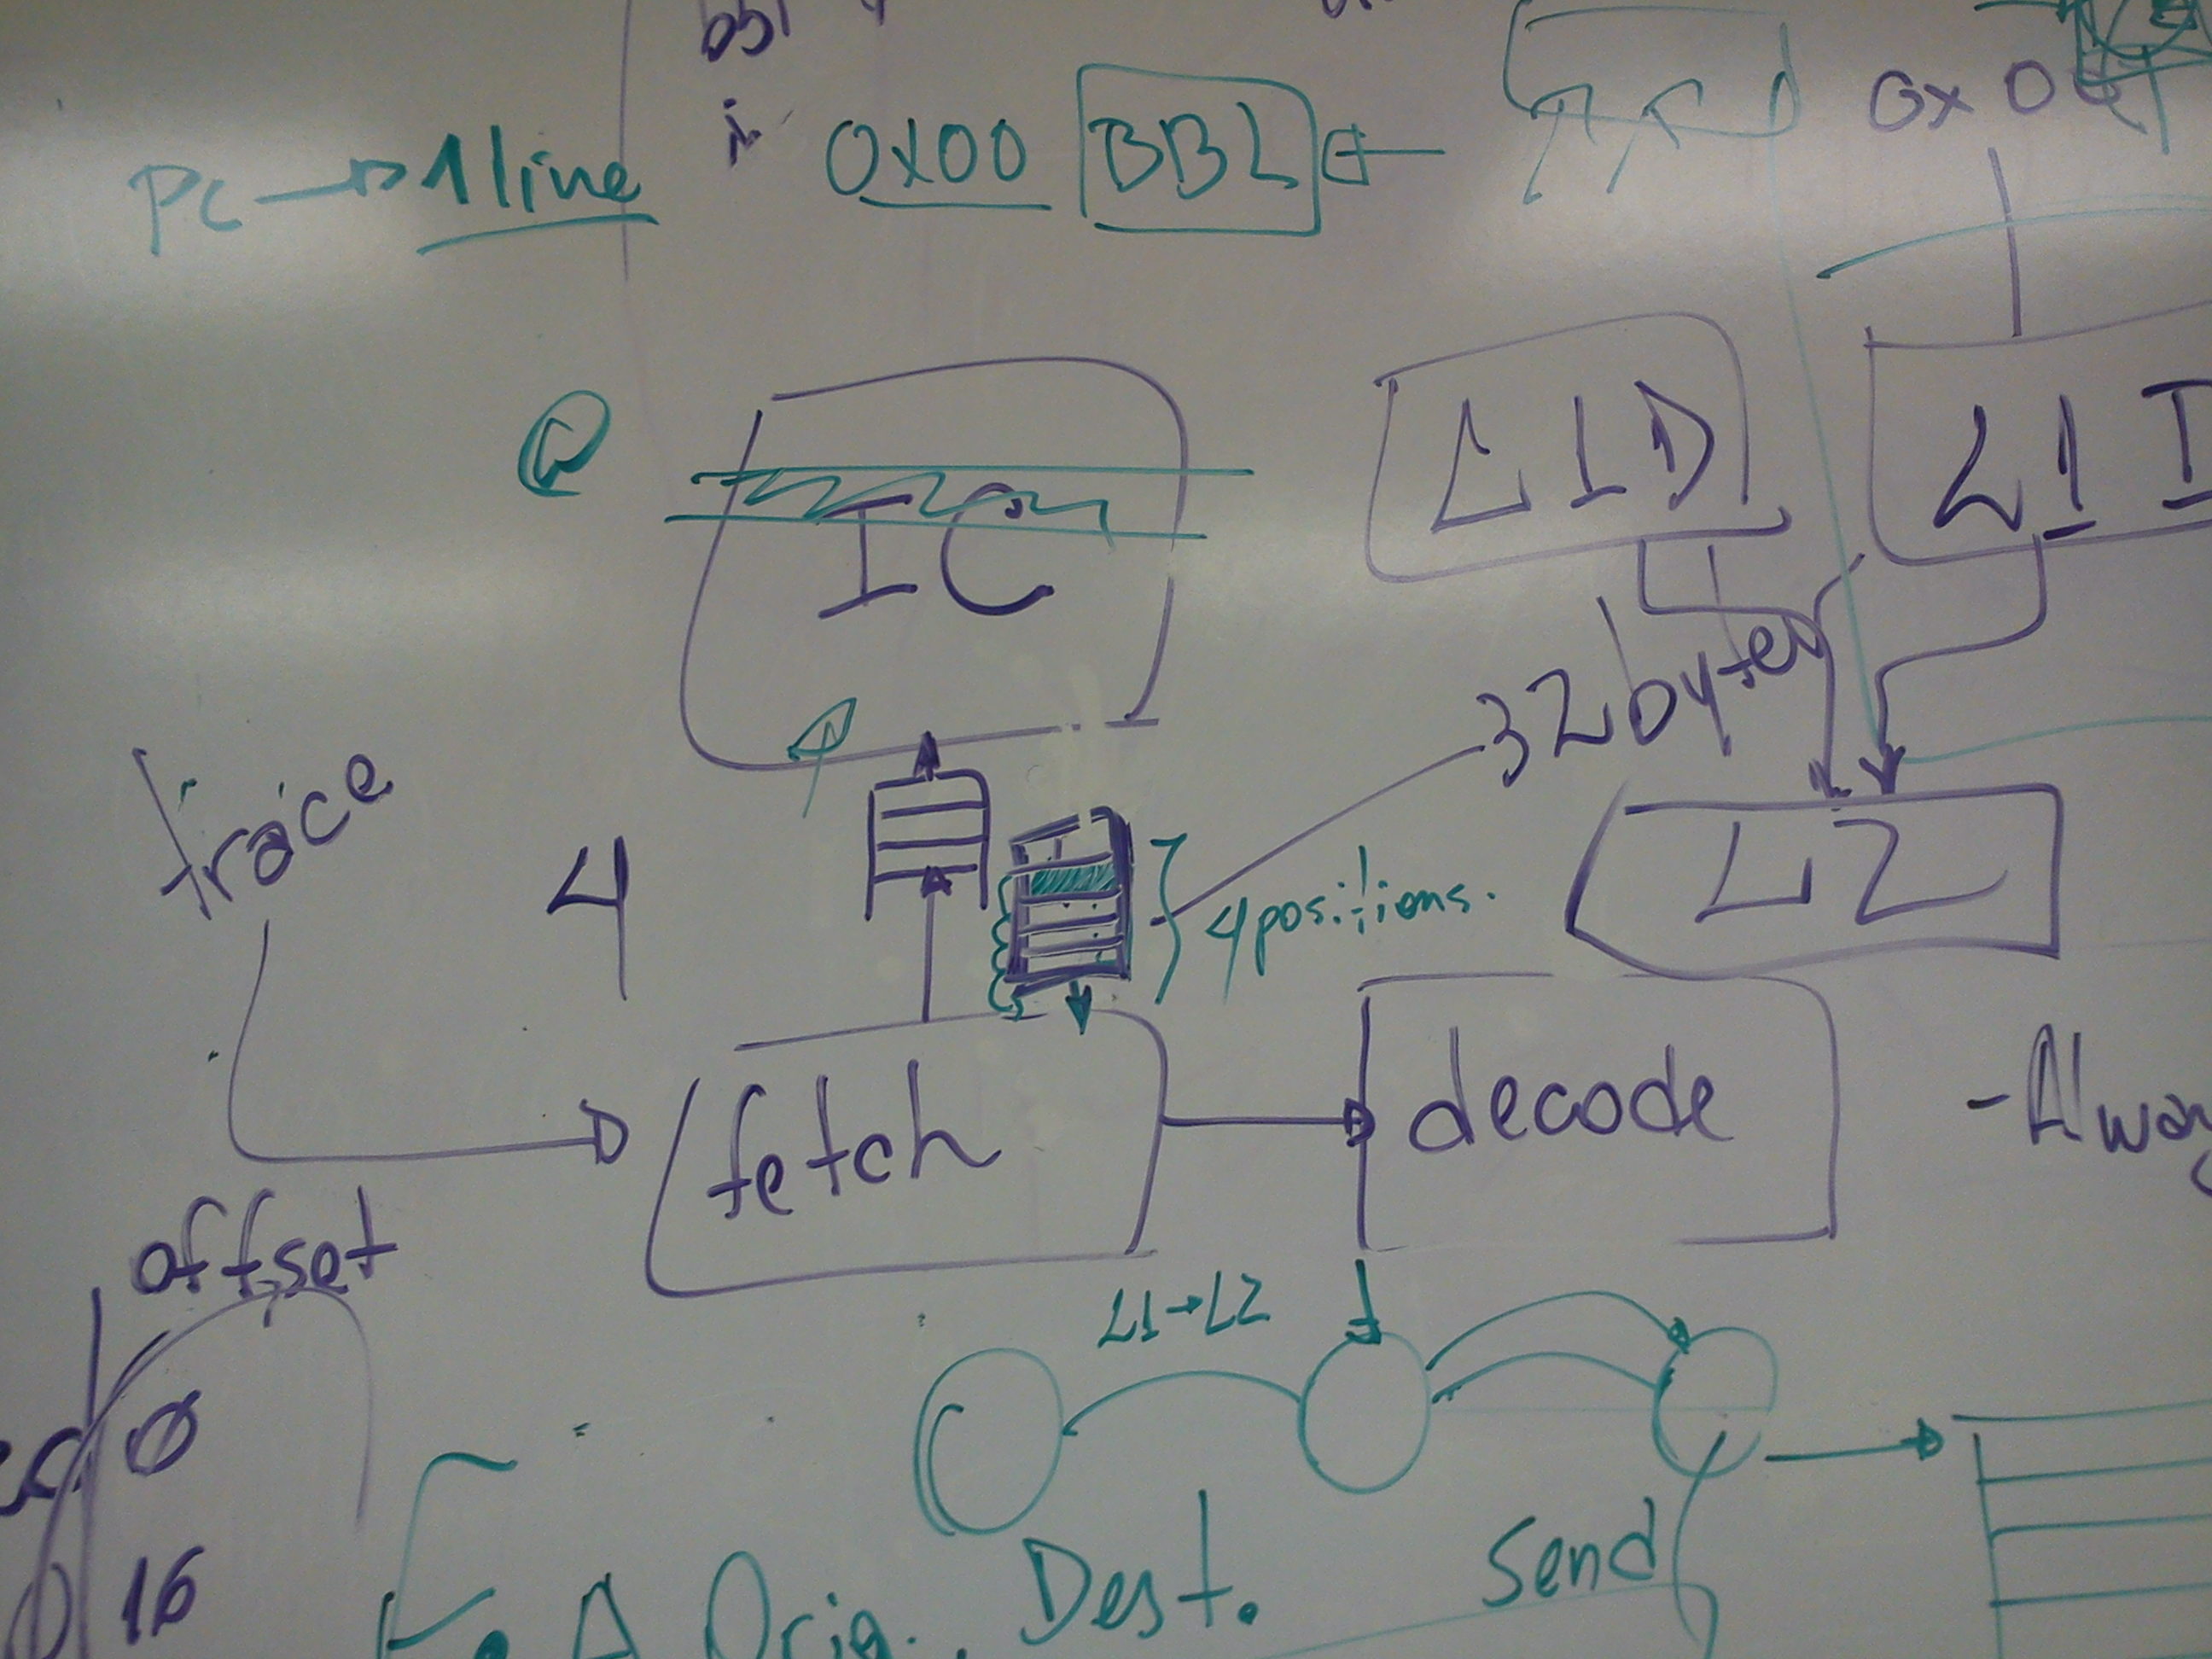 bbl
PC → 1 line
0x00 BBL
0x0
@
IC
L1D
L1 I
32 bytes
trace
4
4 positions.
L2
fetch
decode
- Alway
offset
L1→L2
Ø
16
Orig.
Dest.
Send